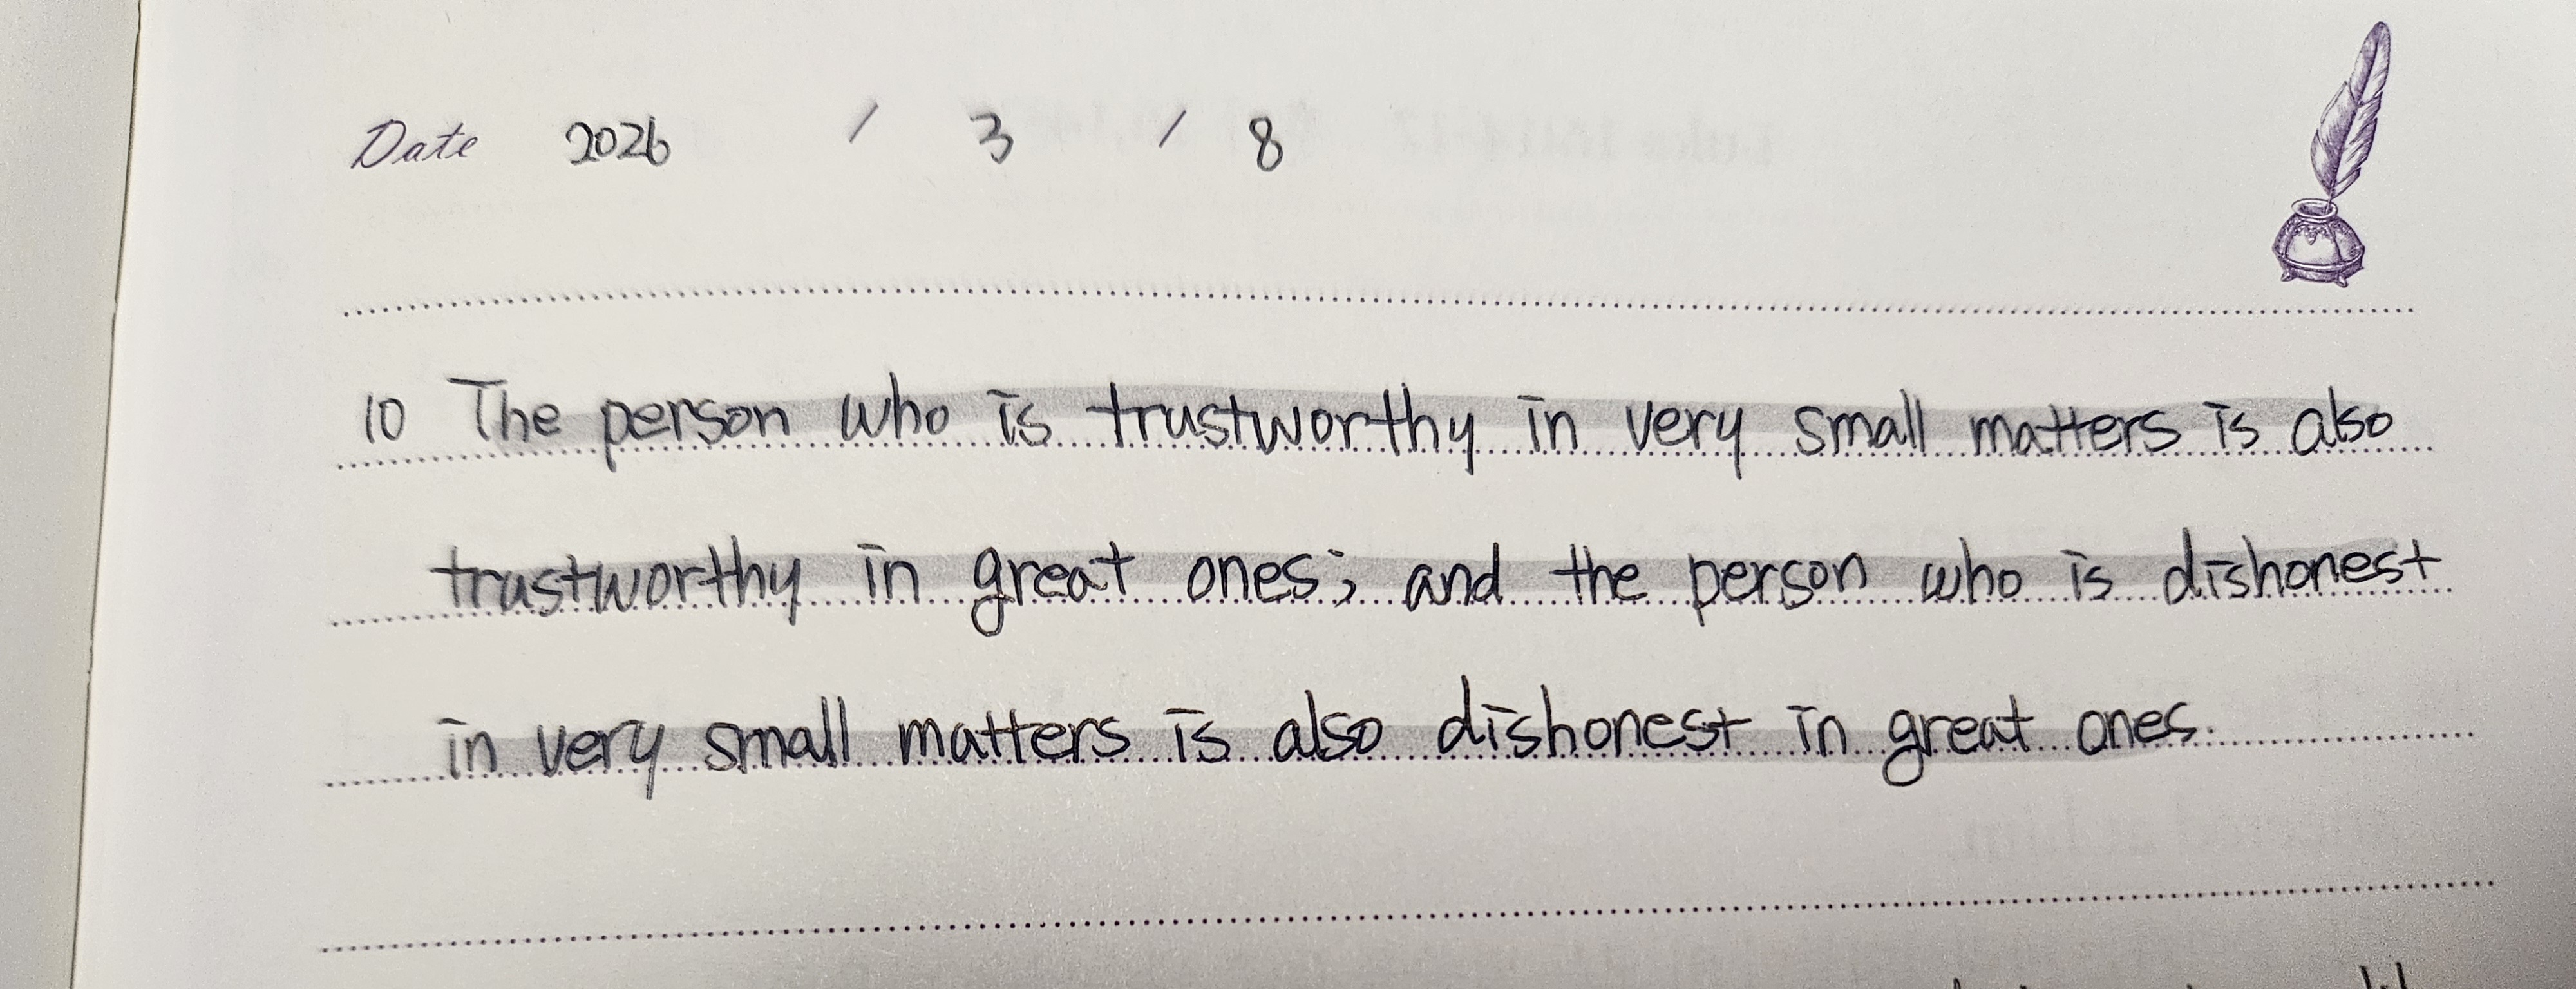 Date 2026 / 3 / 8
10 The person who is trustworthy in very small matters is also
trustworthy in great ones; and the person who is dishonest
in very small matters is also dishonest in great ones.